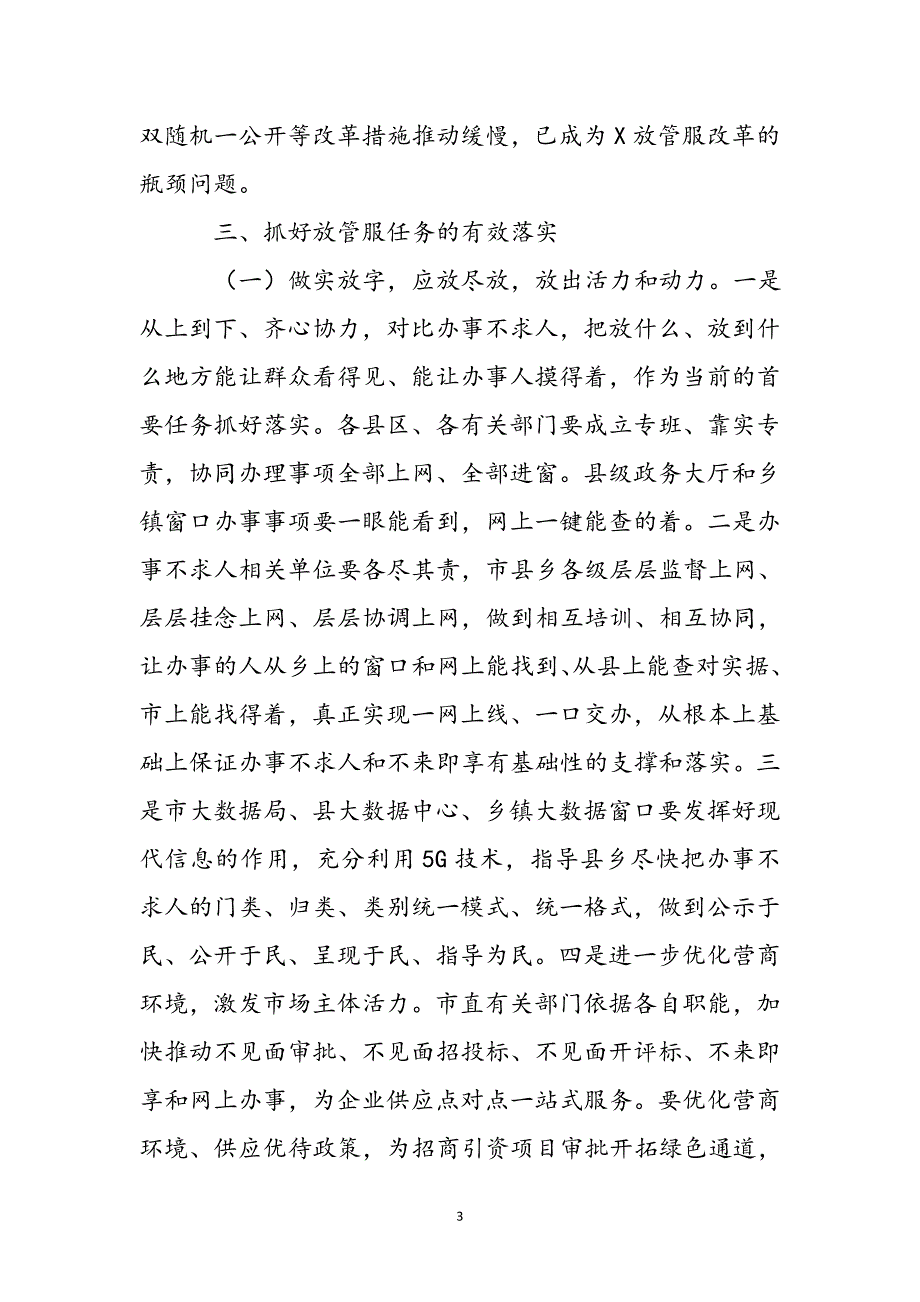 双随机一公开等改革措施推动缓慢，已成为 X 放管服改革的
瓶颈问题。
三、抓好放管服任务的有效落实
（一）做实放字，应放尽放，放出活力和动力。一是
从上到下、齐心协力，对比办事不求人，把放什么、放到什
么地方能让群众看得见、能让办事人摸得着，作为当前的首
要任务抓好落实。各县区、各有关部门要成立专班、靠实专
责，协同办理事项全部上网、全部进窗。县级政务大厅和乡
镇窗口办事事项要一眼能看到，网上一键能查的着。二是办
事不求人相关单位要各尽其责，市县乡各级层层监督上网、
层层挂念上网、层层协调上网，做到相互培训、相互协同，
让办事的人从乡上的窗口和网上能找到、从县上能查对实据、
市上能找得着，真正实现一网上线、一口交办，从根本上基
础上保证办事不求人和不来即享有基础性的支撑和落实。三
是市大数据局、县大数据中心、乡镇大数据窗口要发挥好现
代信息的作用，充分利用 5G 技术，指导县乡尽快把办事不
求人的门类、归类、类别统一模式、统一格式，做到公示于
民、公开于民、呈现于民、指导为民。四是进一步优化营商
环境，激发市场主体活力。市直有关部门依据各自职能，加
快推动不见面审批、不见面招投标、不见面开评标、不来即
享和网上办事，为企业供应点对点一站式服务。要优化营商
环境、供应优待政策，为招商引资项目审批开拓绿色通道，
3